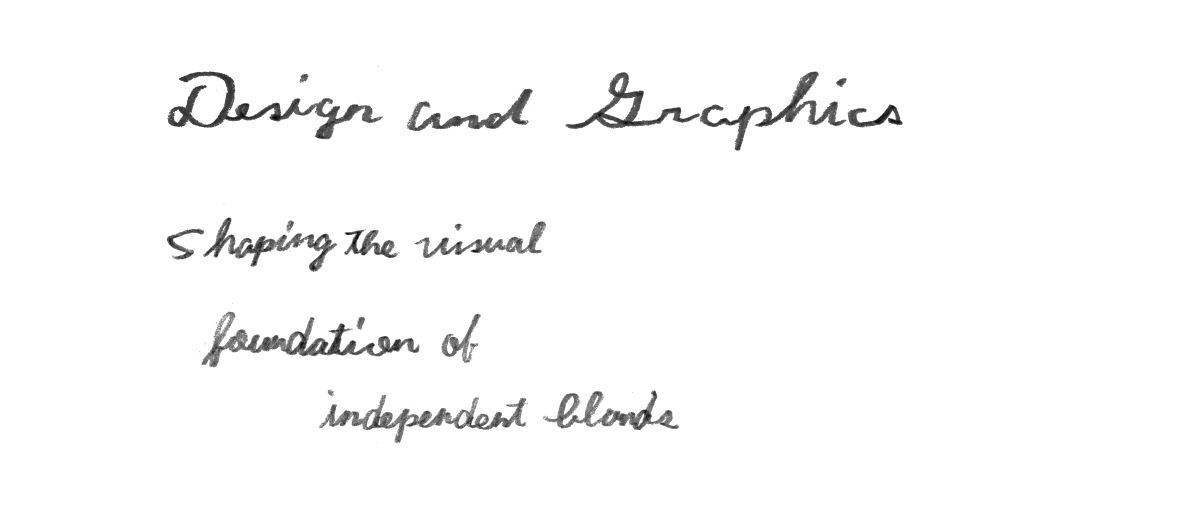 Design and Graphics
Shaping the visual
foundation of
independent